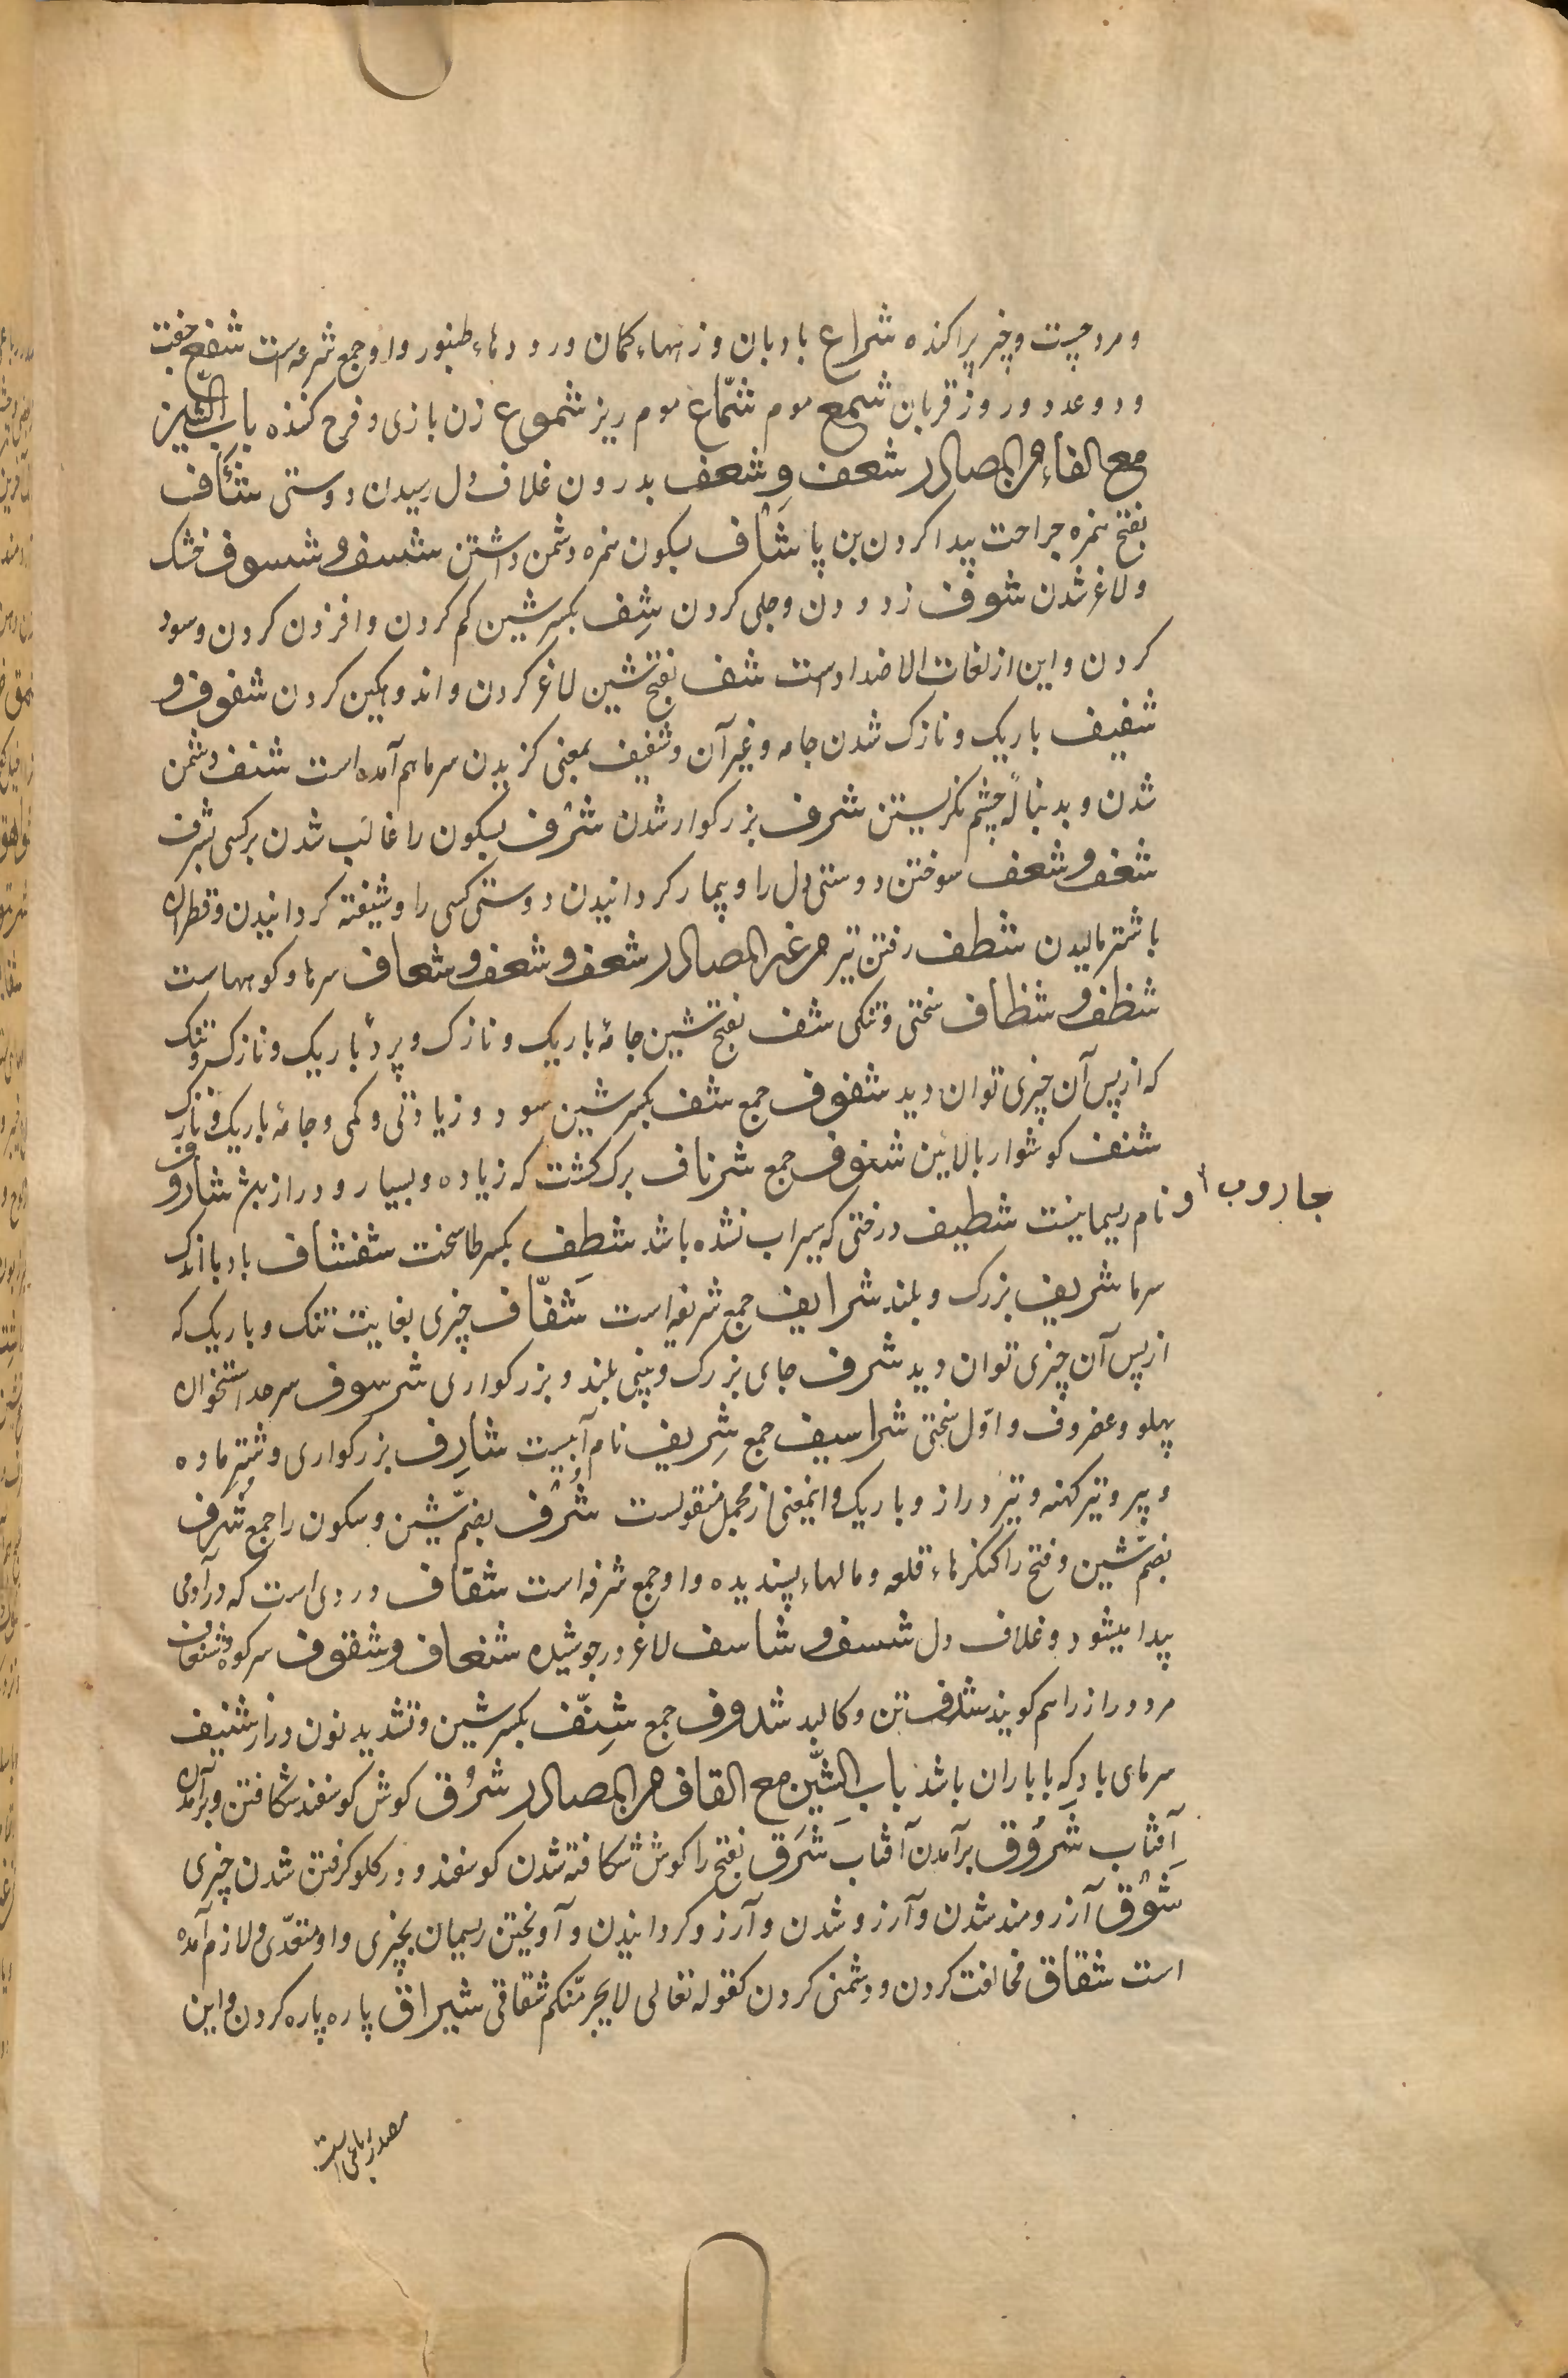 و مرد چست و چیز پراکنده شراع بادبان و زههاء کمان و رودهاء طنبور و او جمع شرعه است شفع جفت
و دو عدد و روز قربان شمع موم شمّاع موم ریز شموع زن بازی و فرح کننده باب الشین
مع الفاء من المصادر شعف و شغف بدرون غلاف دل رسیدن دوستی شئاف
بفتح همزه جراحت پیدا کردن بن پا شأف بسکون همزه دشمن داشتن شسف و شسوف خشک
و لاغر شدن شوف زدودن و جلی کردن شِف بکسر شین کم کردن و افزون کردن و سود
کردن و این از لغات الاضداد است شف بفتح شین لاغر کردن و اندوهگین کردن شفوف و
شفیف باریک و نازک شدن جامه و غیر آن و شفیف بمعنی کزیدن سرما هم آمده است شنف دشمن
شدن و بدنبالۀ چشم نکریستن شرف بزرکوار شدن شرْف بسکون را غالب شدن بر کسی بشرف
شغف و شعف سوختن دوستی دل را و بیمار کردانیدن دوستی کسی را و شیفته کردانیدن و قطران
با شتر مالیدن شطف رفتن تیر من غیر المصادر شعف و شعف و شعاف سرهاء کوههاست
شظف و شظاف سختی و تنکی شف بفتح شین جامۀ باریک و نازک و پردۀ باریک و نازک و تنک
که از پس آن چیزی توان دید شفوف جمع شف بکسر شین سود و زیادتی و کمی و جامۀ باریک و نازک
شنف کوشوار بالایین شنوف جمع شرناف برک کشت که زیاده و بسیار و دراز بود شاروف
جاروب
و نام ریسمانیست شطیف درختی که سیراب نشده باشد شطِف بکسر طا سخت شفشاف باد با اندک
سرما شریف بزرک و بلند شرایف جمع شریفه است شَفّاف چیزی بغایت تنک و باریک که
از پس آن چیزی توان دید شرف جای بزرک و بینی بلند و بزرکواری شرسوف سرحد استخوان
پهلو و غضروف و اوّل سختی شراسیف جمع شِریف نام آبیست شارِف بزرکواری و شتر ماده
و پیر و تیر کهنه و تیر دراز و باریک و اینمعنی از مجمل منقولست شُرْف بضمّ شین و سکون را جمع و شُرف
بضمّ شین و فتح را کنکرهاء قلعه و مالهاء پسندیده و او جمع شرفه است شقاف دردی است که در آدمی
پیدا میشود و غلاف دل شسف و شاسف لاغر در جوشیده شنعاف و شنقوف سر کوه و شنعاف
مرد دراز را هم کویند شدف تن و کالبد شدوف جمع شِنّف بکسر شین و تشدید نون دراز شنیف
سرمای باد که با باران باشد باب الشّین مع القاف من المصادر شرْق کوش کوسفند شکافتن و برآمدن
آفتاب شَرُوق برآمدن آفتاب شَرَق بفتح را کوش شکافته شدن کوسفند و در کلو کرفتن شدن چیزی
شَوْق آرزومند شدن و آرزو شدن و آرزو کردانیدن و آویختن ریسمان بچیزی و او متعدّی و لازم آمده
است شقاق مخالفت کردن و دشمنی کردن کقوله تعالی لا یجرمنّکم شقاقی شبراق پاره پاره کردن و این
مصدر رباعی است